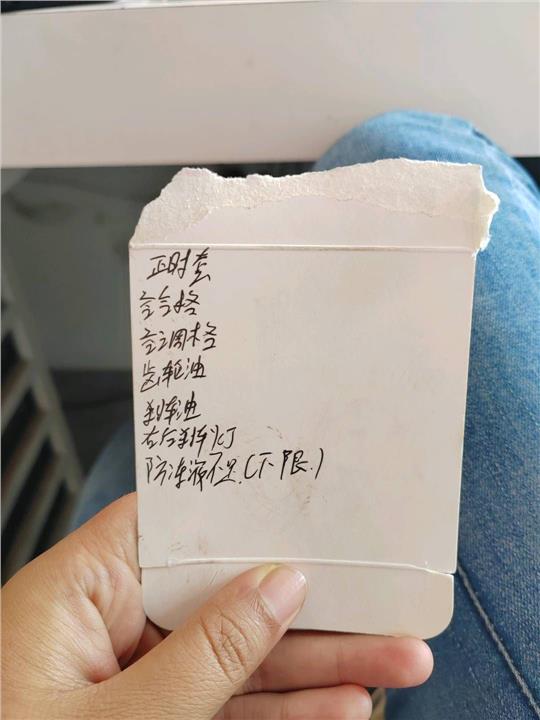 正时套
空气格
空调格
齿轮油
刹车油
右后刹车灯
防冻液不足.(下限.)